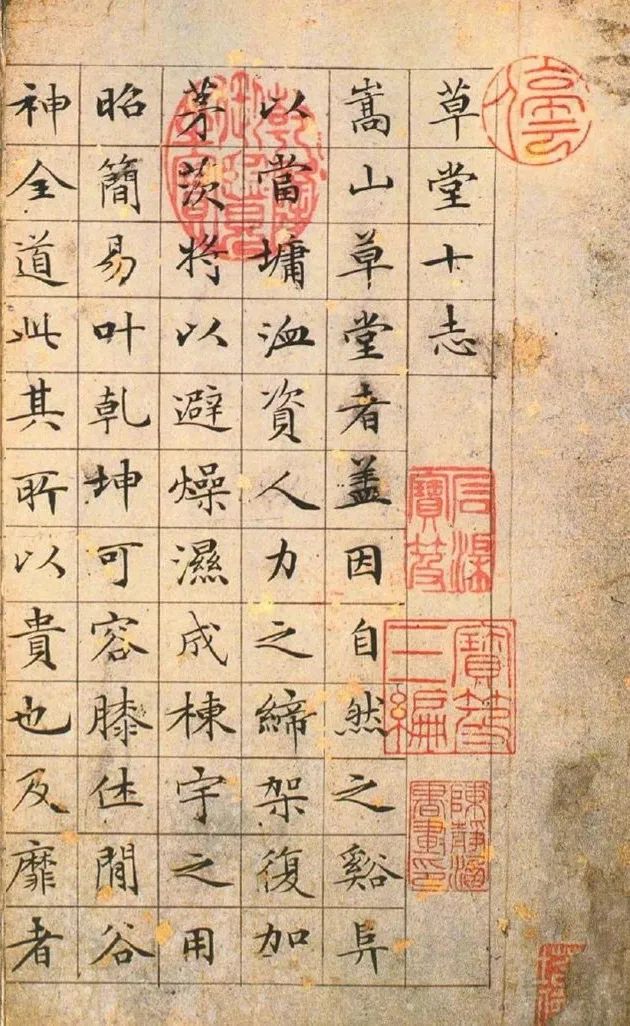 草堂十志
嵩山草堂者盖因自然之谿阜
以當墉洫資人力之締架復加
茅茨将以避燥濕成棟宇之用
昭簡易叶乾坤可容膝休閒谷
神全道此其所以貴也及靡者
寶笈三編